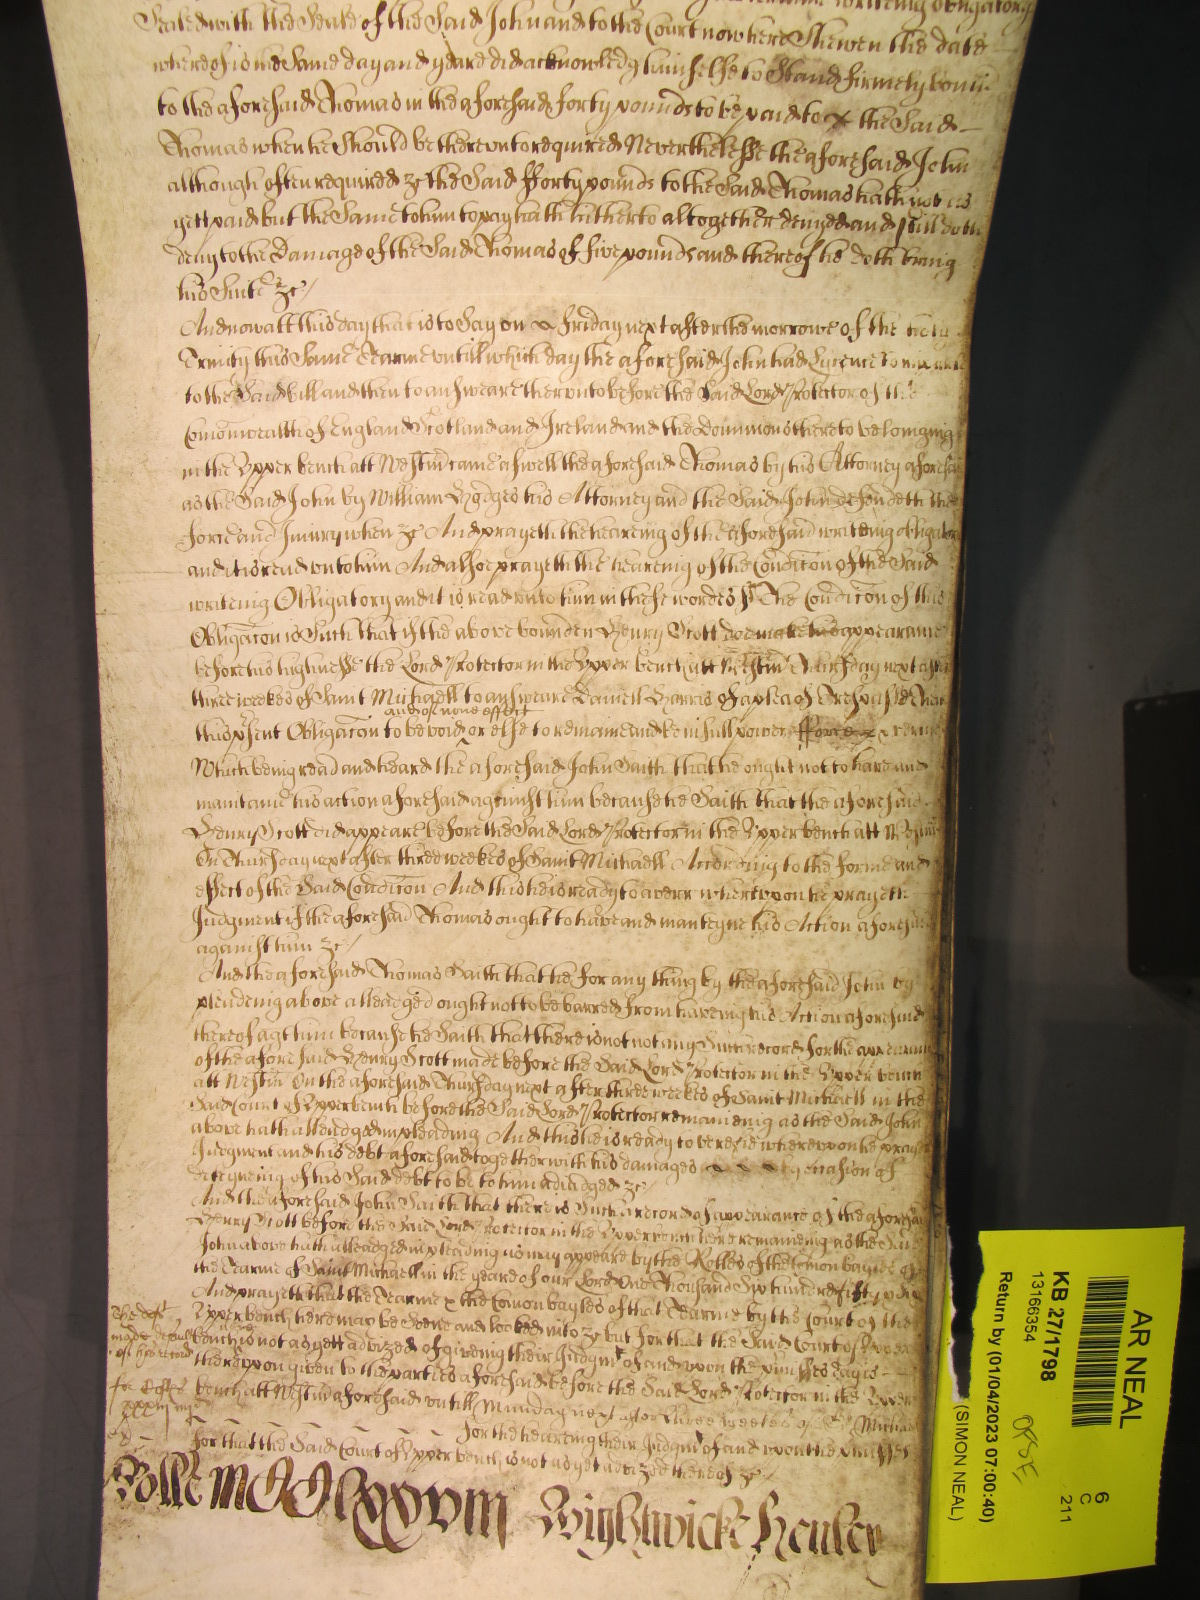 writeing obligatory
Sealed with the Seale of the said John and to the Court now here Shewen the date
whereof is the Same day and yeare did acknowledg himselfe to Stand firmely
to the aforesaid Thomas in the aforesaid forty pounds to be paid to the Said
Thomas when he Should be thereunto required Neverthelesse the aforesaid John
although often required &c the Said fforty pounds to the Said Thomas hath not as
yett paid but the Same to him to pay hath hitherto altogether denyed and still doth
deny to the Damage of the Said Thomas of five pounds and thereof he doth bring
his Suite &c
And now att this day that is to Say on Friday next after the morrowe of the
Trinity this Same Tearme untill which day the aforesaid John had Lycence to
to the Said bill and then to answeare thereunto before the Said Lord Protector of the
Comonwealth of England Scotland and Ireland and the Dominions thereto belonging
in the Upper bench att Westm came aswell the aforesaid Thomas by his Attorney
as the Said John by William Hodges his Attorney and the Said John defendeth the
force and Injury when &c And prayeth the heareing of the aforesaid writeing
and it is read unto him And alsoe prayeth the heareing of the Condicon of the Said
writeing Obligatory and it is read unto him in these wordes The Condicon of this
Obligacon is Such that if the above bounden Henry Scott doe make his appearance
before his highnesse the Lord Protector in the Upper bench att Westm Thursday next after
three weekes of Saint Michaell to answeare Daniell Harris of a plea of Trespasse Then
and of none effect
this psent Obligacon to be void or else to remaine and be in full power
Which being read and heard the aforesaid John Saith that he ought not to have and
maintaine his action aforesaid against him because he Saith that the aforesaid
Henry Scott did appeare before the Said Lord Protector in the Upper bench att
On Thursday next after three weekes of Saint Michaell According to the forme and
effect of the Said Condicon And this he is ready to averr whereupon he prayeth
Judgment if the aforesaid Thomas ought to have and manteyne his Action
against him &c
And the aforesaid Thomas Saith that he for any thing by the aforesaid John by
pleadeing above alleadged ought not to be barred from haveing his Action aforesaid
thereof agt him because he Saith that there is not not any Such record for the
of the aforesaid Henry Scott made before the Said Lord Protector in the Upper bench
att Westm On the aforesaid Thursday next after three weekes of Saint Michaell in the
Said Court of Upper bench before the Said Lord Protector remaineing as the Said John
above hath alleadged in pleading And this he is ready to verefie whereupon he
Judgment and his debt aforesaid together with his damages by occasion of
deteyneing of his Said debt to be to him adiudged &c
And the aforesaid John Saith that there is Such a record of appearance of the
Henry Scott before the Said Lord Protector in the Upper bench here remaineing as the Said
John above hath alleadged in pleading as may appeare by the Rolles of the Comon bayles
the Tearme of Saint Michaell in the yeare of our Lord One Thousand Six hundred fifty
And prayeth that the Tearme the Comon bayles of that Tearme by the Court of the
Upper bench here may be Seene and looked into &c but for that the Said Court of
bench is not as yett advized of giveing their Judgmt of and upon the pmisses day is
thereupon given to the parties aforesaid before the Said Lord Protector in the Upper
bench att Westm aforesaid untill Munday next after three weekes of St Michael
for the heareing their Judgmt of and upon the pmisses
for that the Said Court of Upper bench is not as yett advized thereof &c
The deft
made default
of his record
Rolle Wightwicke Henley
AR NEAL
6
C
211
KB 27/1798
13166354
Return by (01/04/2023 07:00:40)
(SIMON NEAL)